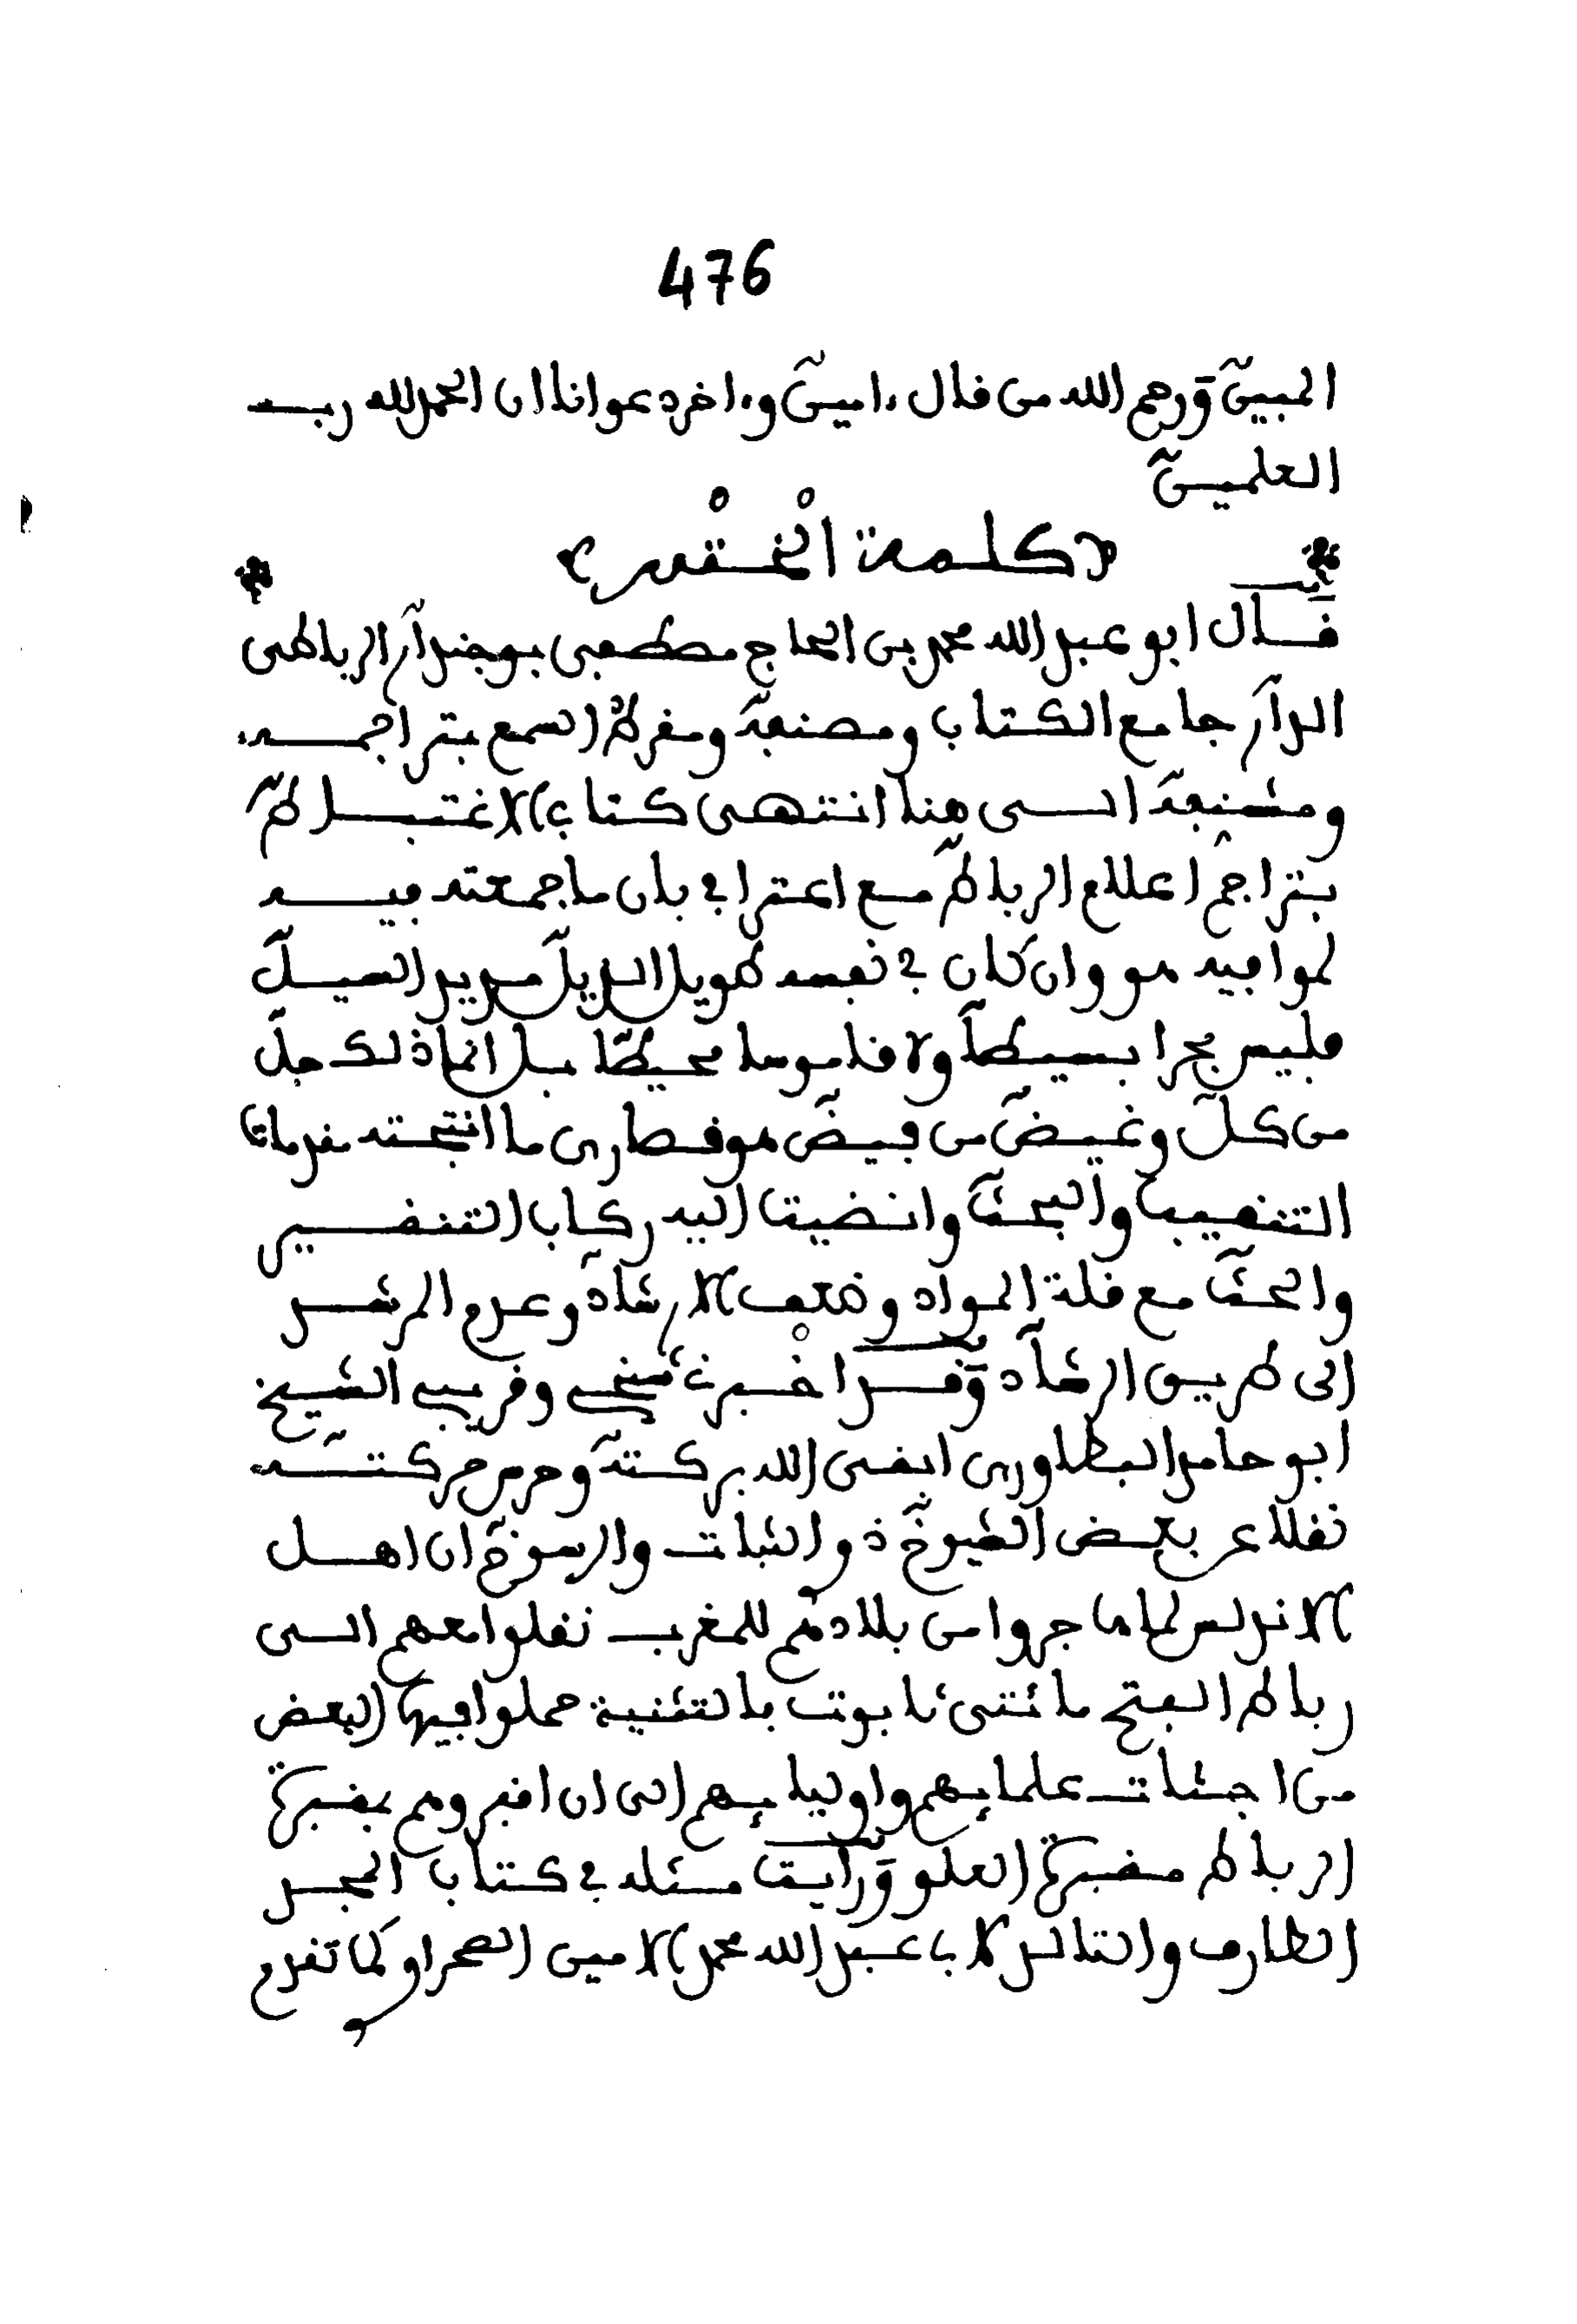 476
المبين ورحم الله من قال ءامين وءاخر دعوانا ان الحمد لله رب
العلمين
«كلمة الختم»
قال ابو عبد الله محمد بن الحاج مصطفى بوجندار الرباطى
الدار جامع الكتاب ومصنفه ومقرط السمع بتراجمه
ومشنفه الى هنا انتهى كتاب الاغتباط
بتراجم اعلام الرباط مع اعترافي بان ما جمعته فيه
لموافيه هو وان كان في نفسه طويل الذيل مديد السيل
فليس بحرا بسيطا ولا قاموسا محيطا بل انما ذلك جل
من كل وغيض من فيض هو قصارى ما انتجته مقدمات
التنقيب والبحث وانضيت اليه ركاب التنقير
والحث مع قلة المواد وضعف الارشاد وعدم المرشد
الى طريق الرشاد وقد اخبرني شيخي وقريبي الشيخ
ابو حامد البطاورى ابقى الله بركته وحرس حركته
نقلا عن بعض الشيوخ ذو الثبات والرسوخ ان اهل
الاندلس لما هاجروا من بلادهم للمغرب نقلوا معهم الى
رباط الفتح مائتى تابوت بالتثنية حملوا فيها البعض
من اجثات علمايهم واوليايهم الى ان اقبروهم بمقبرة
الرباط مقبرة العلو ورأيت مثله في كتاب المجد
الطارف والتالد لابي عبد الله محمد الامين الصحراوي كما تقدم